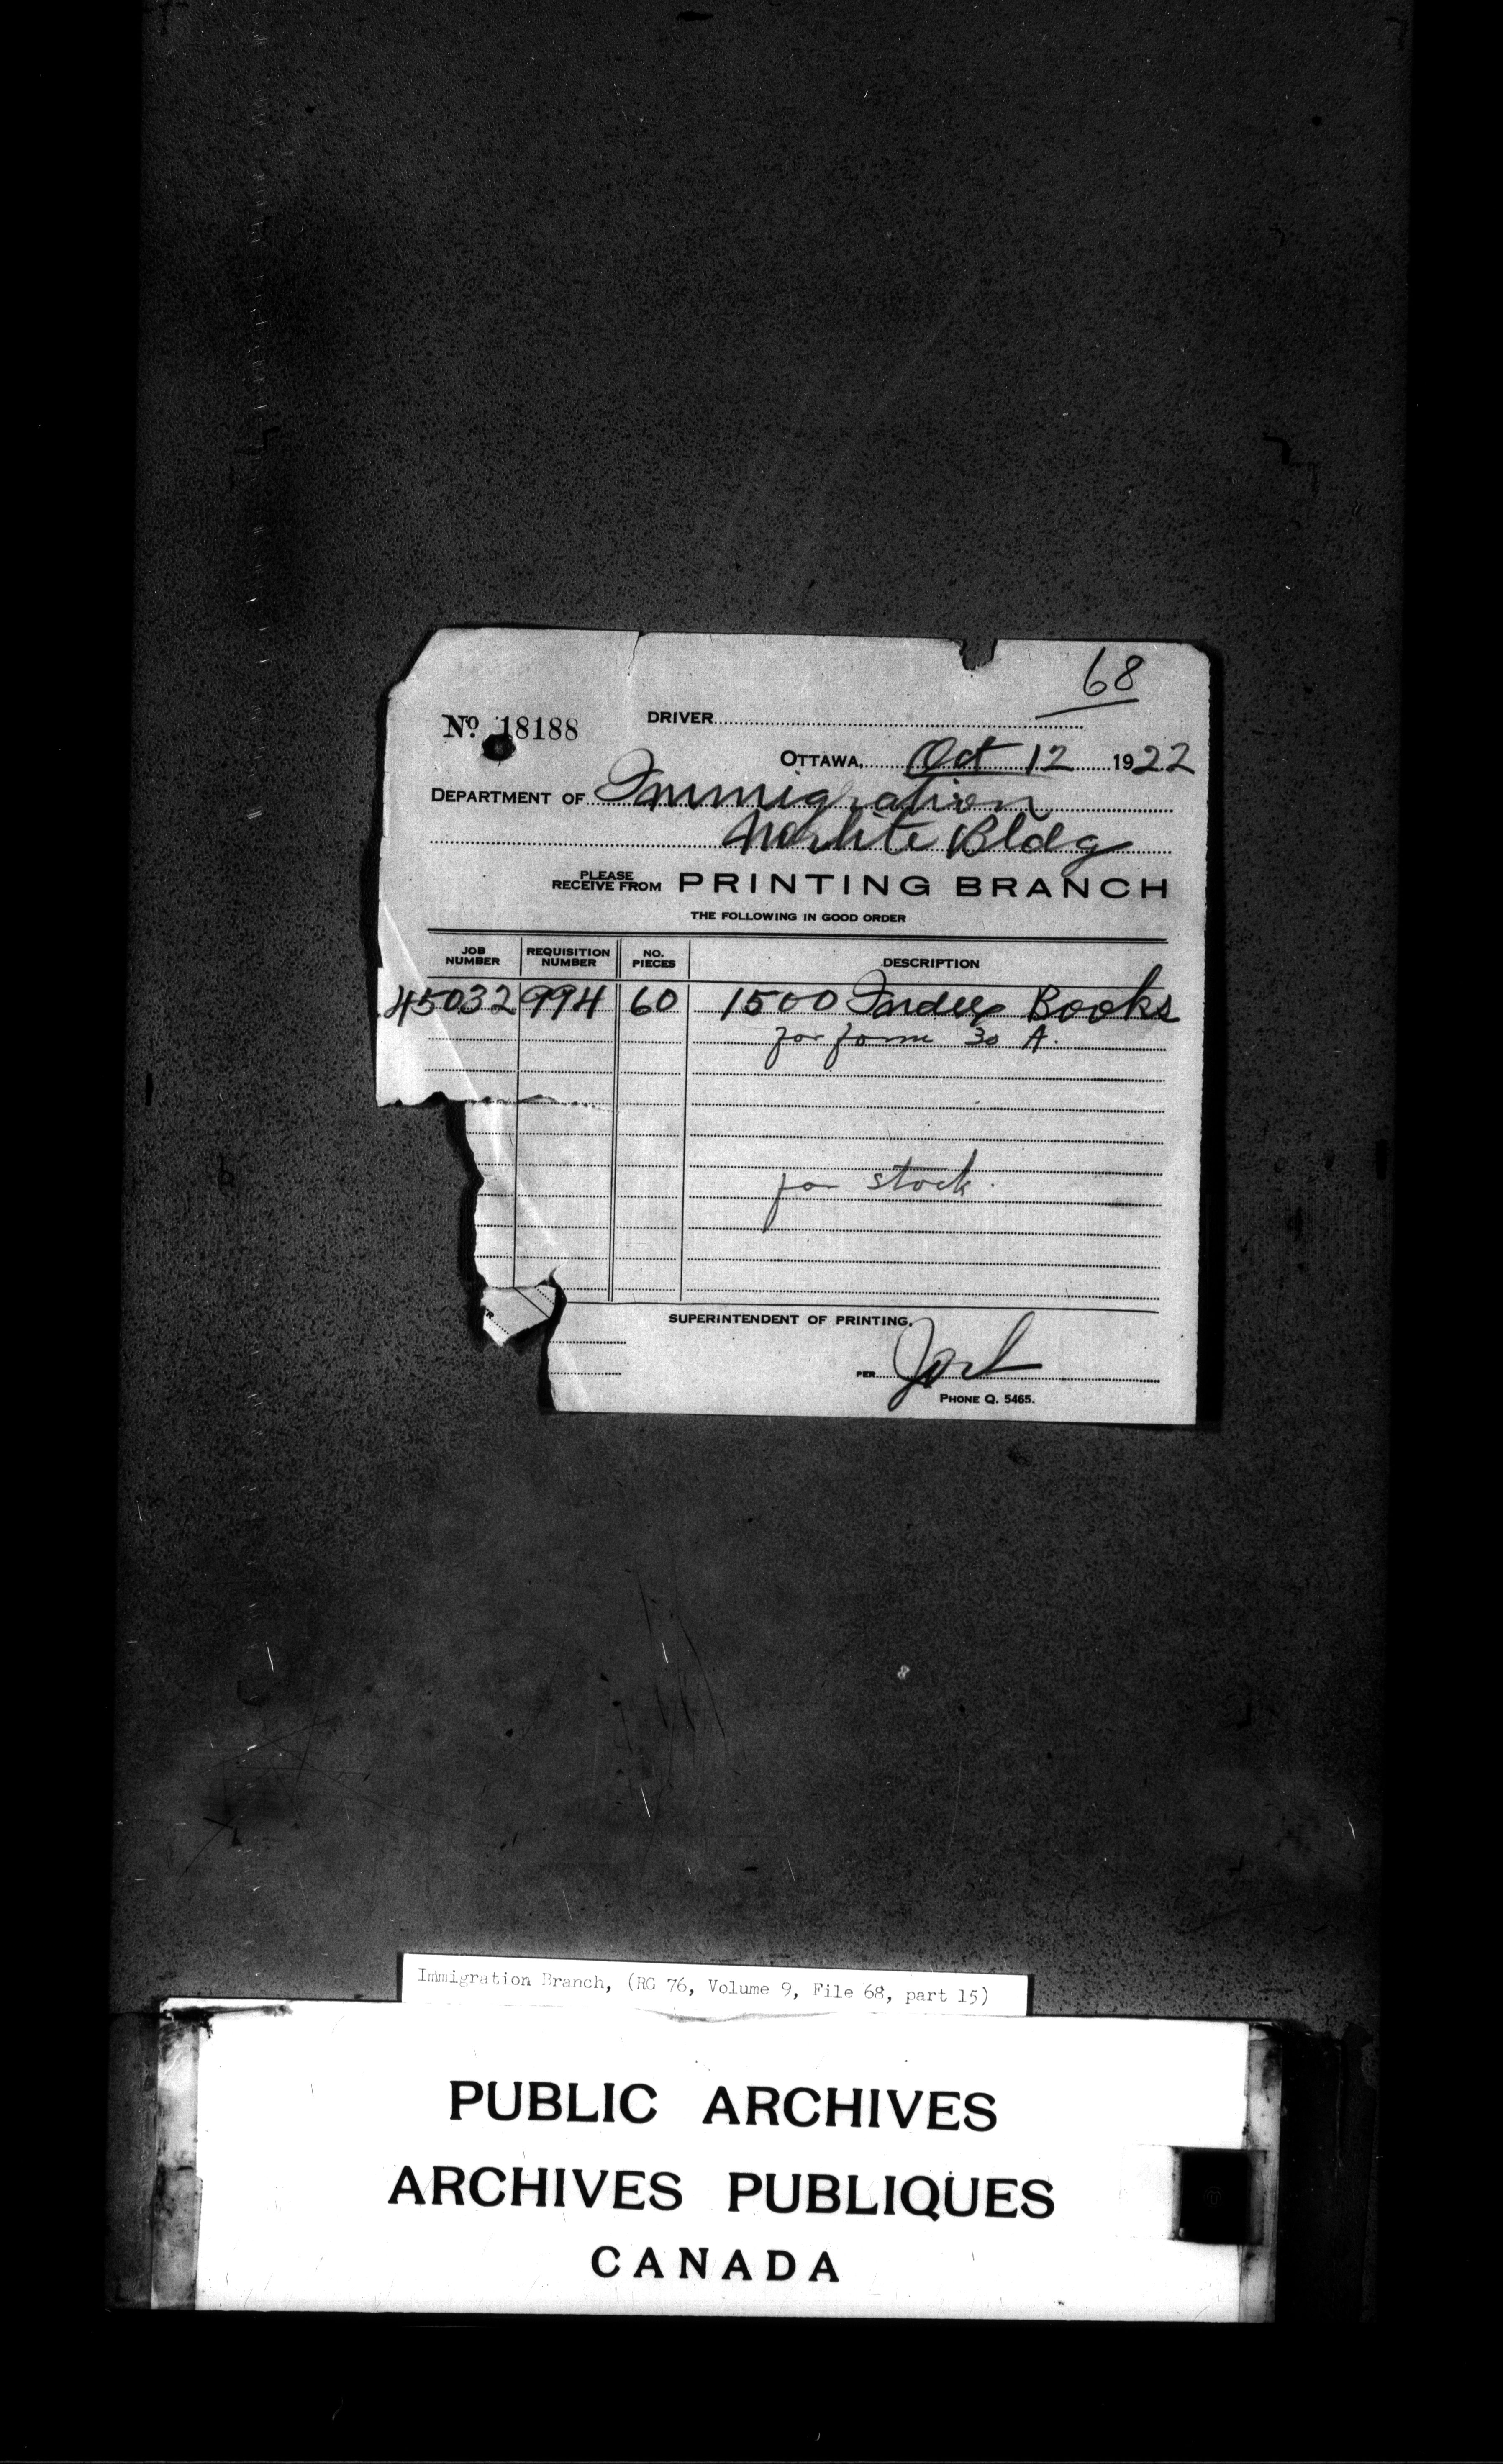 68
No. 18188 DRIVER
OTTAWA, Oct 12 1922
DEPARTMENT OF Immigration
Norlite Bldg
PLEASE RECEIVE FROM PRINTING BRANCH
THE FOLLOWING IN GOOD ORDER
JOB NUMBER REQUISITION NUMBER NO. PIECES DESCRIPTION
45032 994 60 1500 Index Books
for form 30 A.
for stock.
SUPERINTENDENT OF PRINTING,
PER
PHONE Q. 5465.
Immigration Branch, (RG 76, Volume 9, File 68, part 15)
PUBLIC ARCHIVES
ARCHIVES PUBLIQUES
CANADA